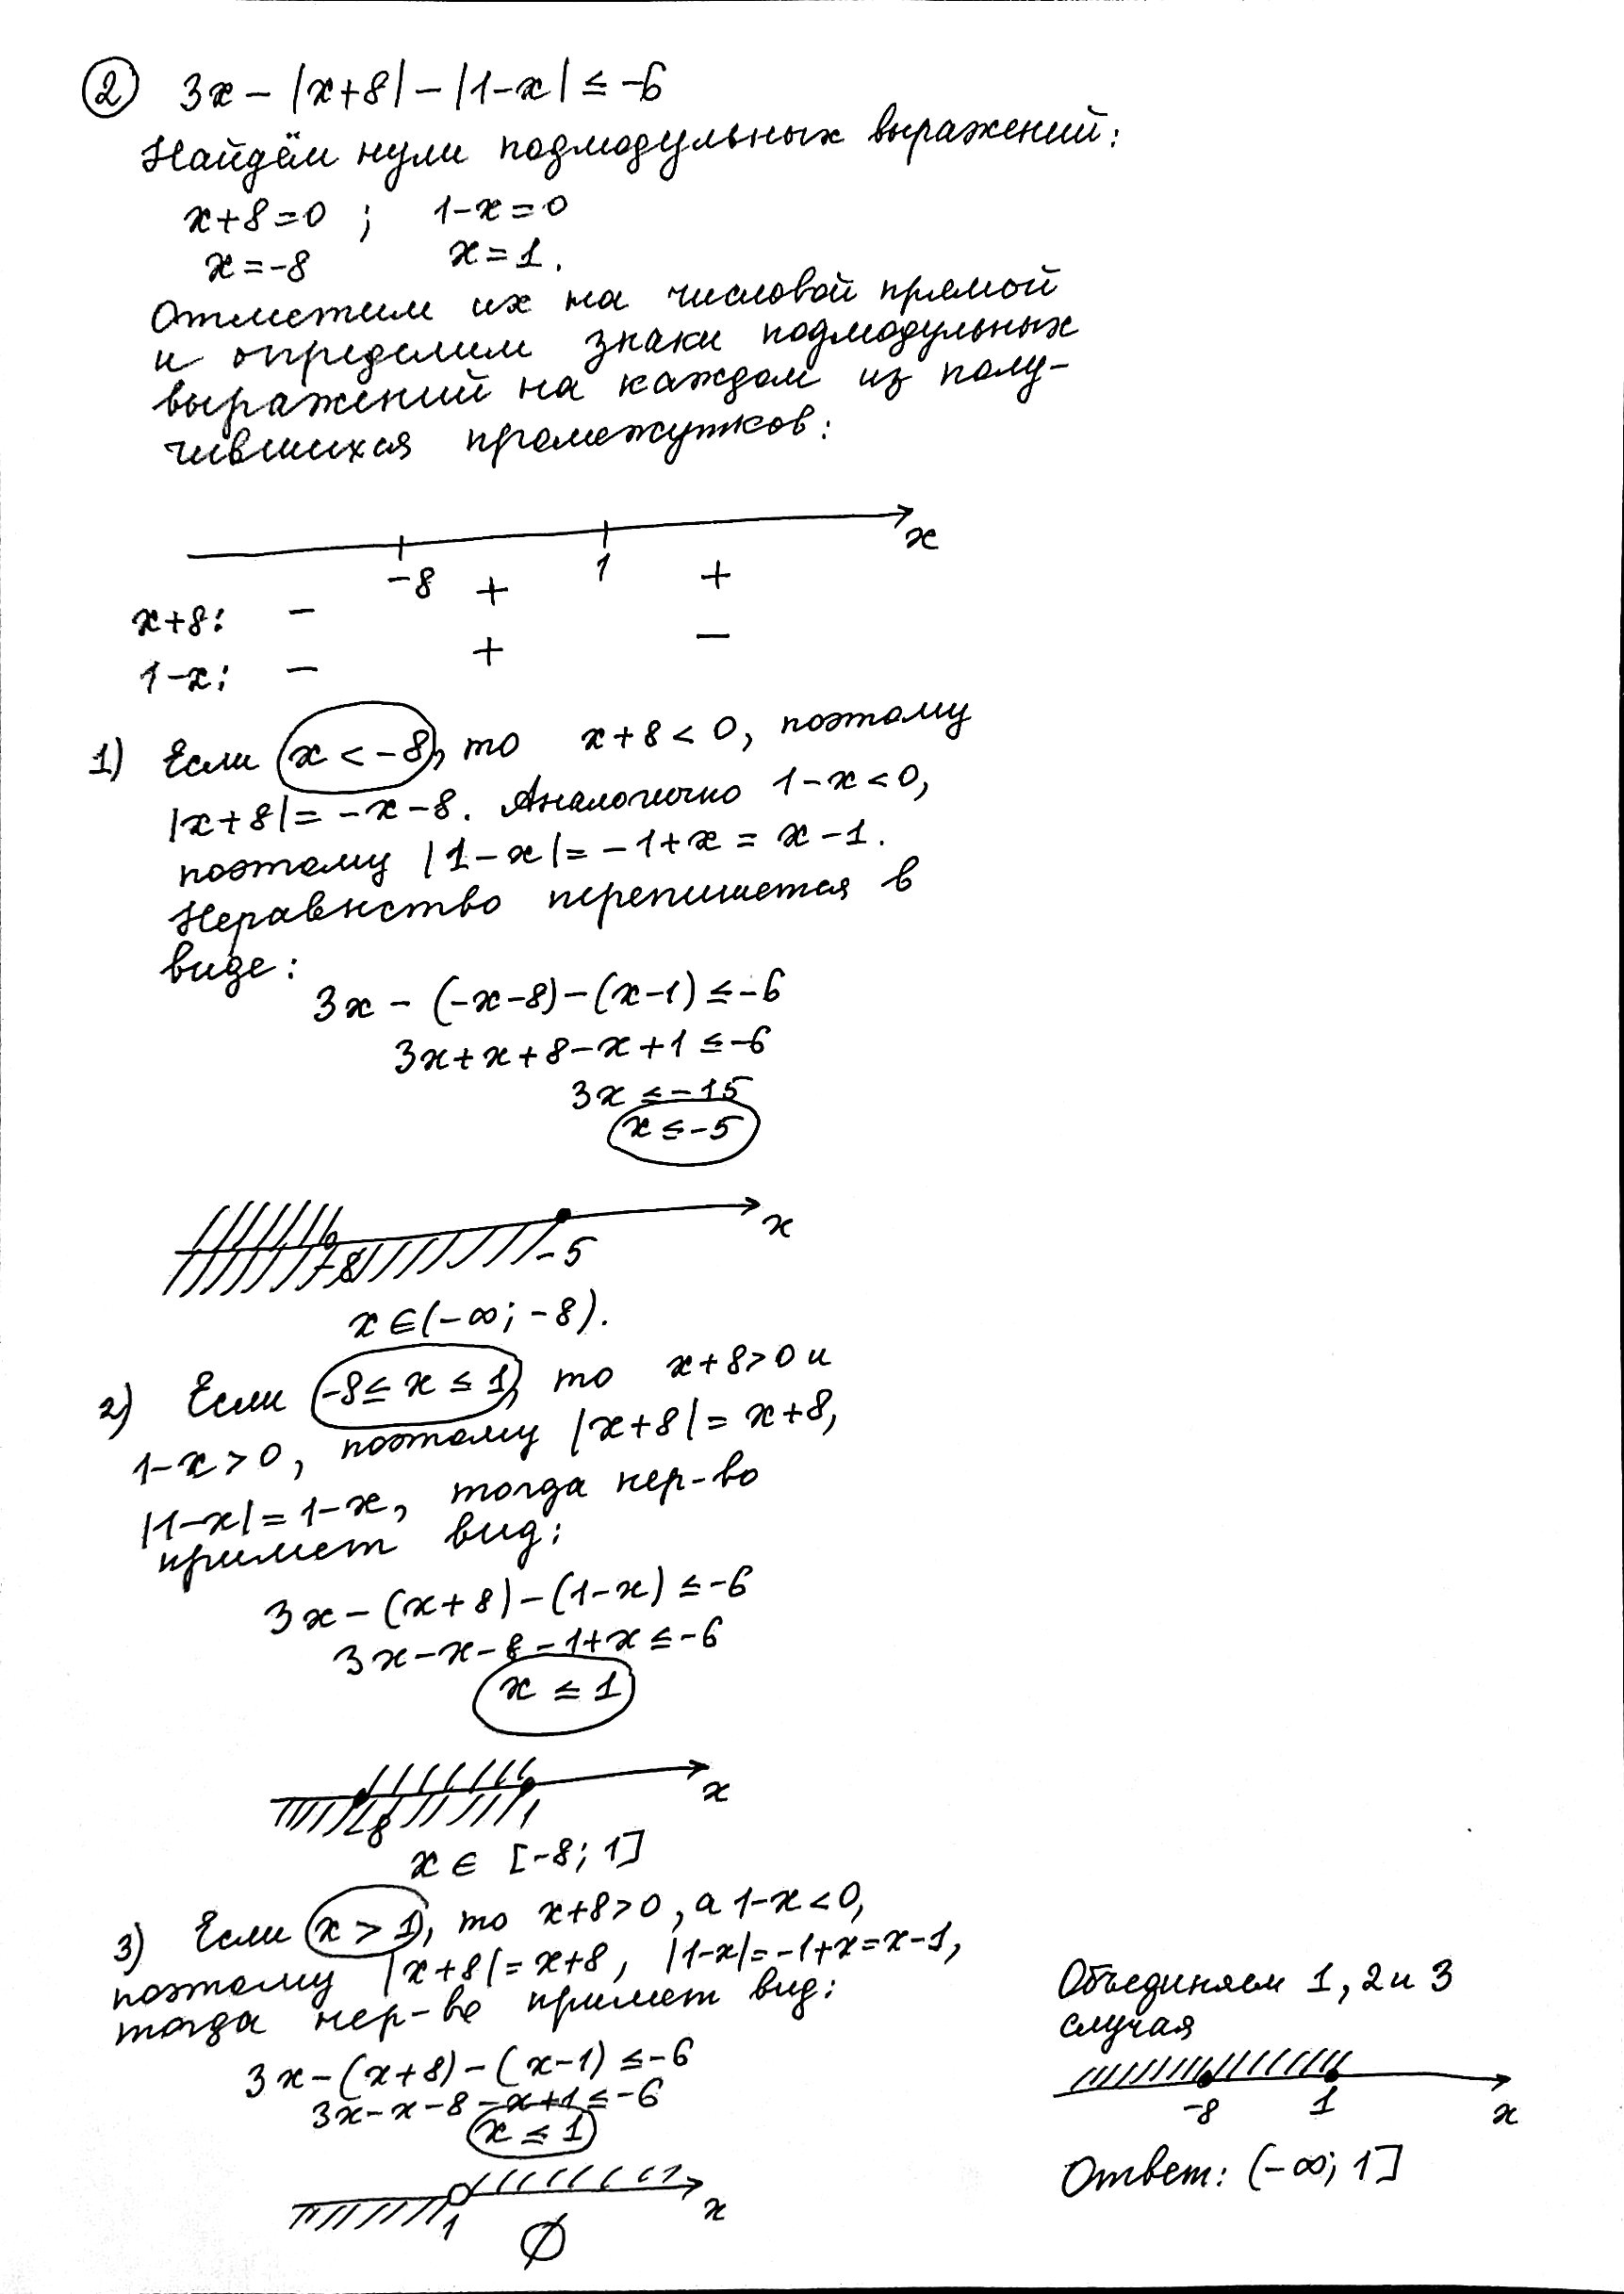 2 3x - |x+8| - |1-x| ≤ -6
Найдём нули подмодульных выражений:
x+8=0 ; 1-x=0
x=-8 x=1.
Отметим их на числовой прямой
и определим знаки подмодульных
выражений на каждом из полу-
чившихся промежутков:
-8 1 x
x+8: - + +
1-x: - + -
1) Если x < -8, то x+8 < 0, поэтому
|x+8| = -x-8. Аналогично 1-x<0,
поэтому |1-x| = -1+x = x-1.
Неравенство перепишется в
виде:
3x - (-x-8) - (x-1) ≤ -6
3x+x+8-x+1 ≤ -6
3x ≤ -15
x ≤ -5
-8 -5 x
x ∈ (-∞; -8).
2) Если -8 ≤ x ≤ 1, то x+8>0 и
1-x>0, поэтому |x+8| = x+8,
|1-x| = 1-x, тогда нер-во
примет вид:
3x - (x+8) - (1-x) ≤ -6
3x-x-8-1+x ≤ -6
x ≤ 1
-8 1 x
x ∈ [-8; 1]
3) Если x > 1, то x+8>0, а 1-x<0,
поэтому |x+8| = x+8, |1-x| = -1+x = x-1,
тогда нер-во примет вид:
3x - (x+8) - (x-1) ≤ -6
3x-x-8-x+1 ≤ -6
x ≤ 1
1 x
∅
Объединяем 1, 2 и 3
случая
-8 1 x
Ответ: (-∞; 1]